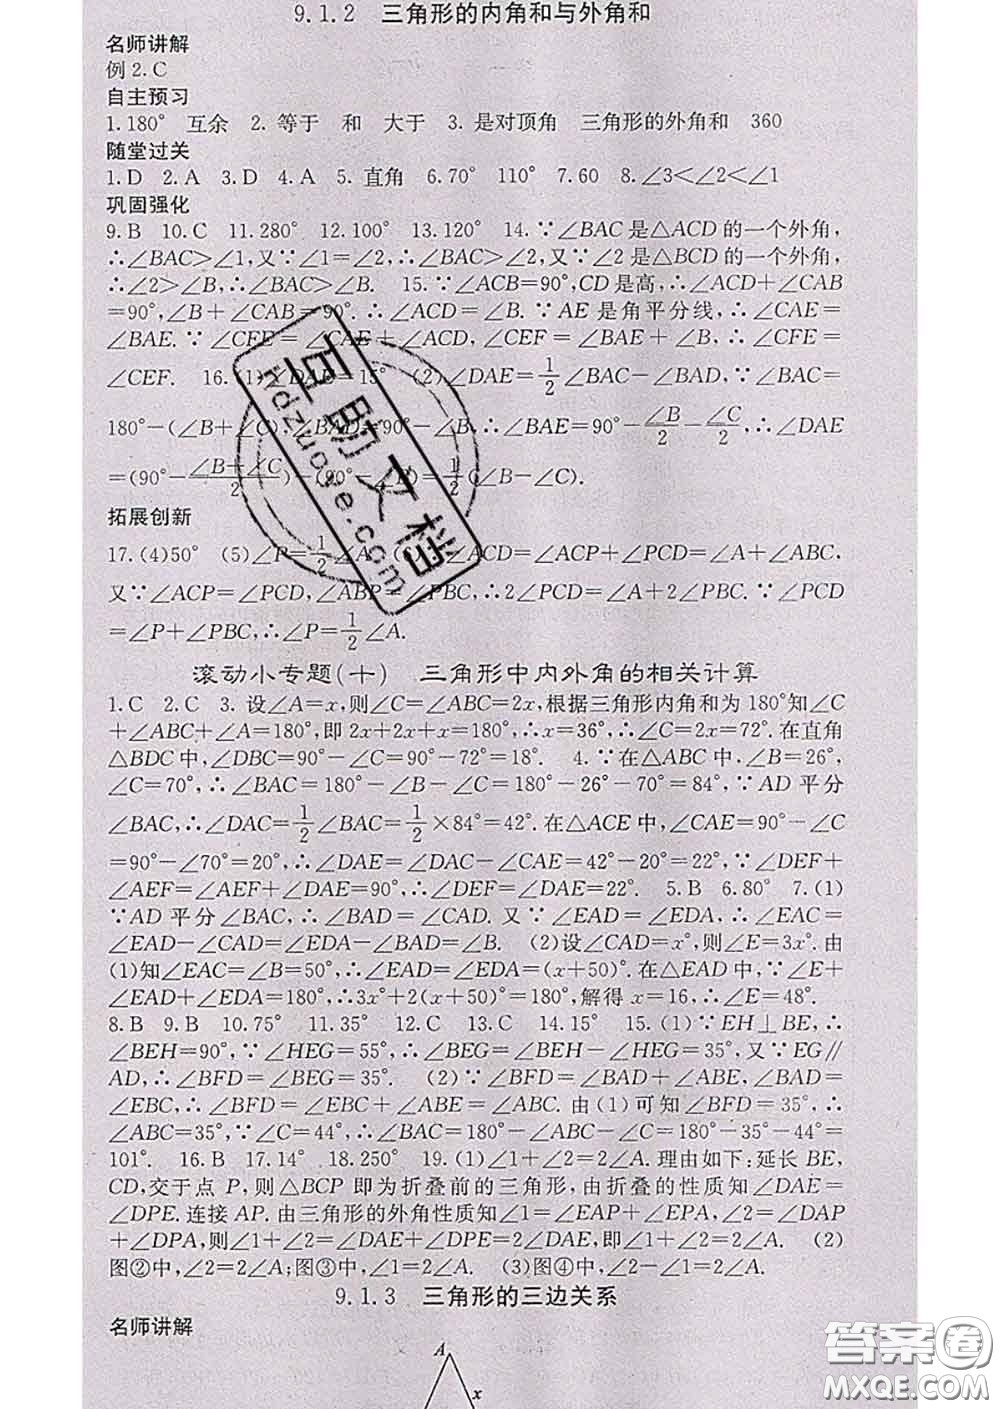 9.1.2 三角形的内角和与外角和
名师讲解
例2.C
自主预习
1.180° 互余 2.等于 和 大于 3.是对顶角 三角形的外角和 360
随堂过关
1.D 2.A 3.D 4.A 5.直角 6.70° 110° 7.60 8.∠3<∠2<∠1
巩固强化
9.B 10.C 11.280° 12.100° 13.120° 14.∵∠BAC是△ACD的一个外角,
∴∠BAC>∠1,又∵∠1=∠2,∴∠BAC>∠2,又∵∠2是△BCD的一个外角,
∴∠2>∠B,∴∠BAC>∠B. 15.∵∠ACB=90°,CD是高,∴∠ACD+∠CAB
=90°,∠B+∠CAB=90°.∴∠ACD=∠B.∵AE是角平分线,∴∠CAE=
∠BAE.∵∠CFE=∠CAE+∠ACD,∠CEF=∠BAE+∠B,∴∠CFE=
∠CEF. 16.(1)∠DAE=15° (2)∠DAE=1/2∠BAC-∠BAD,∵∠BAC=
180°-(∠B+∠C),∠BAD=90°-∠B,∴∠BAE=90°-∠B/2-∠C/2,∴∠DAE
=(90°-(∠B+∠C)/2)-(90°-∠B)=1/2(∠B-∠C).
拓展创新
17.(4)50° (5)∠P=1/2∠A,∵∠ACD=∠ACP+∠PCD=∠A+∠ABC,
又∵∠ACP=∠PCD,∠ABP=∠PBC,∴2∠PCD=∠A+2∠PBC.∵∠PCD
=∠P+∠PBC,∴∠P=1/2∠A.
滚动小专题(十) 三角形中内外角的相关计算
1.C 2.C 3.设∠A=x,则∠C=∠ABC=2x,根据三角形内角和为180°知∠C
+∠ABC+∠A=180°,即2x+2x+x=180°,∴x=36°,∴∠C=2x=72°.在直角
△BDC中,∠DBC=90°-∠C=90°-72°=18°. 4.∵在△ABC中,∠B=26°,
∠C=70°,∴∠BAC=180°-∠B-∠C=180°-26°-70°=84°,∵AD平分
∠BAC,∴∠DAC=1/2∠BAC=1/2×84°=42°.在△ACE中,∠CAE=90°-∠C
=90°-∠70°=20°,∴∠DAE=∠DAC-∠CAE=42°-20°=22°,∵∠DEF+
∠AEF=∠AEF+∠DAE=90°,∴∠DEF=∠DAE=22°. 5.B 6.80° 7.(1)
∵AD平分∠BAC,∴∠BAD=∠CAD.又∵∠EAD=∠EDA,∴∠EAC=
∠EAD-∠CAD=∠EDA-∠BAD=∠B. (2)设∠CAD=x°,则∠E=3x°.由
(1)知∠EAC=∠B=50°,∴∠EAD=∠EDA=(x+50)°.在△EAD中,∵∠E+
∠EAD+∠EDA=180°,∴3x°+2(x+50)°=180°,解得x=16,∴∠E=48°.
8.B 9.B 10.75° 11.35° 12.C 13.C 14.15° 15.(1)∵EH⊥BE,∴
∠BEH=90°,∵∠HEG=55°,∴∠BEG=∠BEH-∠HEG=35°,又∵EG∥
AD,∴∠BFD=∠BEG=35°. (2)∵∠BFD=∠BAD+∠ABE,∠BAD=
∠EBC,∴∠BFD=∠EBC+∠ABE=∠ABC.由(1)可知∠BFD=35°,∴
∠ABC=35°,∵∠C=44°,∴∠BAC=180°-∠ABC-∠C=180°-35°-44°=
101°. 16.B 17.14° 18.250° 19.(1)∠1+∠2=2∠A.理由如下:延长BE,
CD,交于点P,则△BCP即为折叠前的三角形,由折叠的性质知∠DAE=
∠DPE.连接AP.由三角形的外角性质知∠1=∠EAP+∠EPA,∠2=∠DAP
+∠DPA,则∠1+∠2=∠DAE+∠DPE=2∠DAE,即∠1+∠2=2∠A. (2)
图②中,∠2=2∠A;图③中,∠1=2∠A. (3)图④中,∠2-∠1=2∠A.
9.1.3 三角形的三边关系
名师讲解
A
x
百助文档
hdzuoye.com
答案卷
MXQE.COM